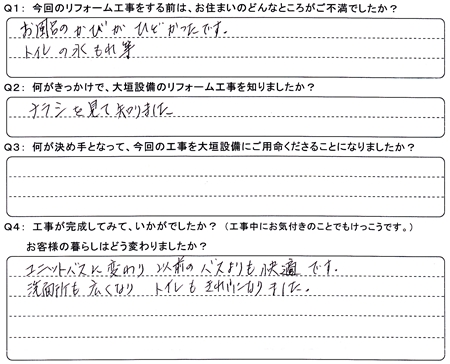 Q1: 今回のリフォーム工事をする前は、お住まいのどんなところがご不満でしたか?
お風呂のかびがひどかったです。
トイレの水もれ等
Q2: 何がきっかけで、大垣設備のリフォーム工事を知りましたか?
チラシを見て知りました
Q3: 何が決め手となって、今回の工事を大垣設備にご用命くださることになりましたか?
Q4: 工事が完成してみて、いかがでしたか? (工事中にお気付きのことでもけっこうです。)
お客様の暮らしはどう変わりましたか?
ユニットバスに変わり 以前のバスよりも快適です。
洗面所も広くなり トイレもきれいになりました。